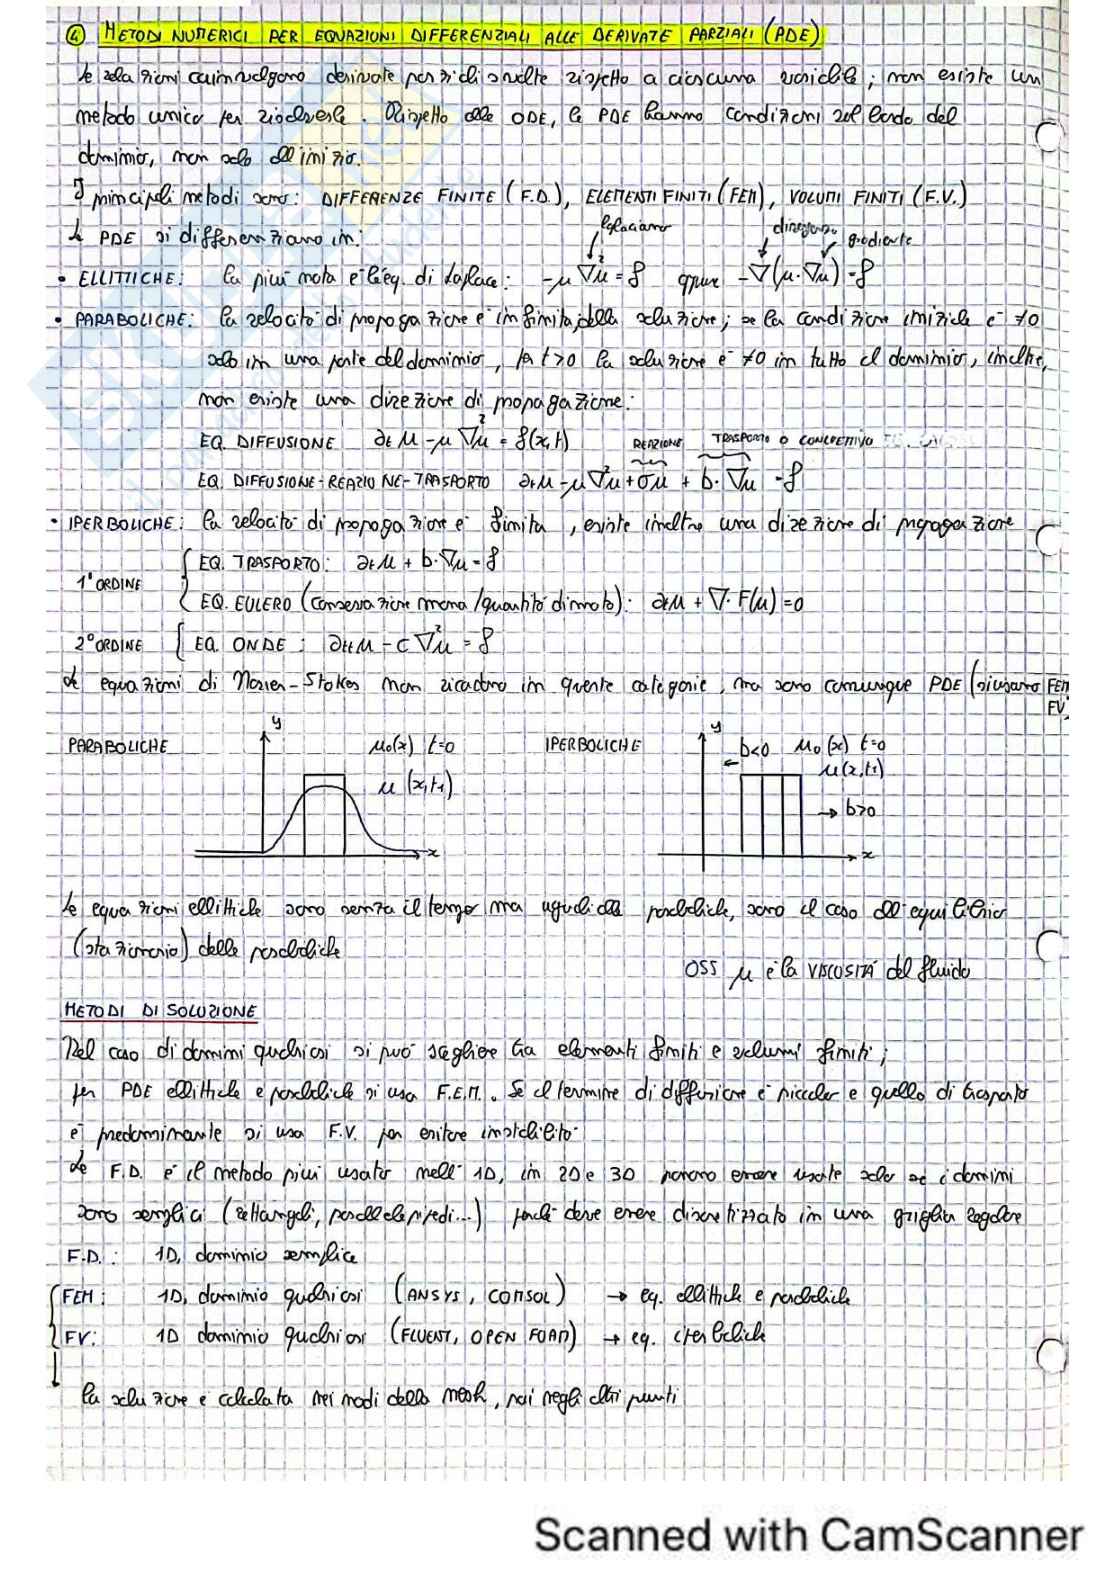 ④ METODI NUMERICI PER EQUAZIONI DIFFERENZIALI ALLE DERIVATE PARZIALI (PDE)
Le relazioni coinvolgono derivate parziali svolte rispetto a ciascuna variabile; non esiste un
metodo unico per risolverle. Rispetto alle ODE, le PDE hanno condizioni sul bordo del
dominio, non solo all'inizio.
I principali metodi sono: DIFFERENZE FINITE (F.D.), ELEMENTI FINITI (FEM), VOLUMI FINITI (F.V.)
Le PDE si differenziano in:
laplaciano divergenza gradiente
• ELLITTICHE: la più nota è l'eq. di Laplace: -μ ∇²u = f oppure -∇(μ·∇u) = f
• PARABOLICHE: la velocità di propagazione è infinita, della soluzione; se la condizione iniziale è ≠0
solo in una parte del dominio, per t>0 la soluzione è ≠0 in tutto il dominio, inoltre,
non esiste una direzione di propagazione:
EQ. DIFFUSIONE ∂tu - μ ∇²u = f(x,t) REAZIONE TRASPORTO O CONVETTIVO
EQ. DIFFUSIONE-REAZIONE-TRASPORTO ∂tu - μ∇²u + σu + b·∇u = f
• IPERBOLICHE: la velocità di propagazione è finita, esiste inoltre una direzione di propagazione
1° ORDINE
EQ. TRASPORTO: ∂tu + b·∇u = f
EQ. EULERO (conservazione massa/quantità di moto): ∂tu + ∇·F(u) = 0
2° ORDINE { EQ. ONDE: ∂ttu - c ∇²u = f
Le equazioni di Navier-Stokes non ricadono in queste categorie, ma sono comunque PDE (si usano FEM
FV)
PARABOLICHE y u₀(x) t=0
u(x,t₁)
x
IPERBOLICHE y b<0 u₀(x) t=0
u(x,t₁)
→ b>0
x
Le equazioni ellittiche sono senza il tempo ma uguali alle paraboliche, sono il caso all'equilibrio
(stazionario) delle paraboliche
OSS μ è la VISCOSITÀ del fluido
METODI DI SOLUZIONE
Nel caso di domini qualsiasi si può scegliere tra elementi finiti e volumi finiti;
per PDE ellittiche e paraboliche si usa F.E.M.. Se il termine di diffusione è piccolo e quello di trasporto
è predominante si usa F.V. per evitare instabilità
Le F.D. è il metodo più usato nell' 1D, in 2D e 3D possono essere usate solo se i domini
sono semplici (rettangoli, parallelepipedi...) perché deve essere discretizzato in una griglia regolare
F.D.: 1D, dominio semplice
FEM: 1D, dominio qualsiasi (ANSYS, COMSOL) → eq. ellittiche e paraboliche
FV: 1D dominio qualsiasi (FLUENT, OPEN FOAM) → eq. iperboliche
la soluzione è calcolata nei nodi della mesh, poi negli altri punti
Scanned with CamScanner